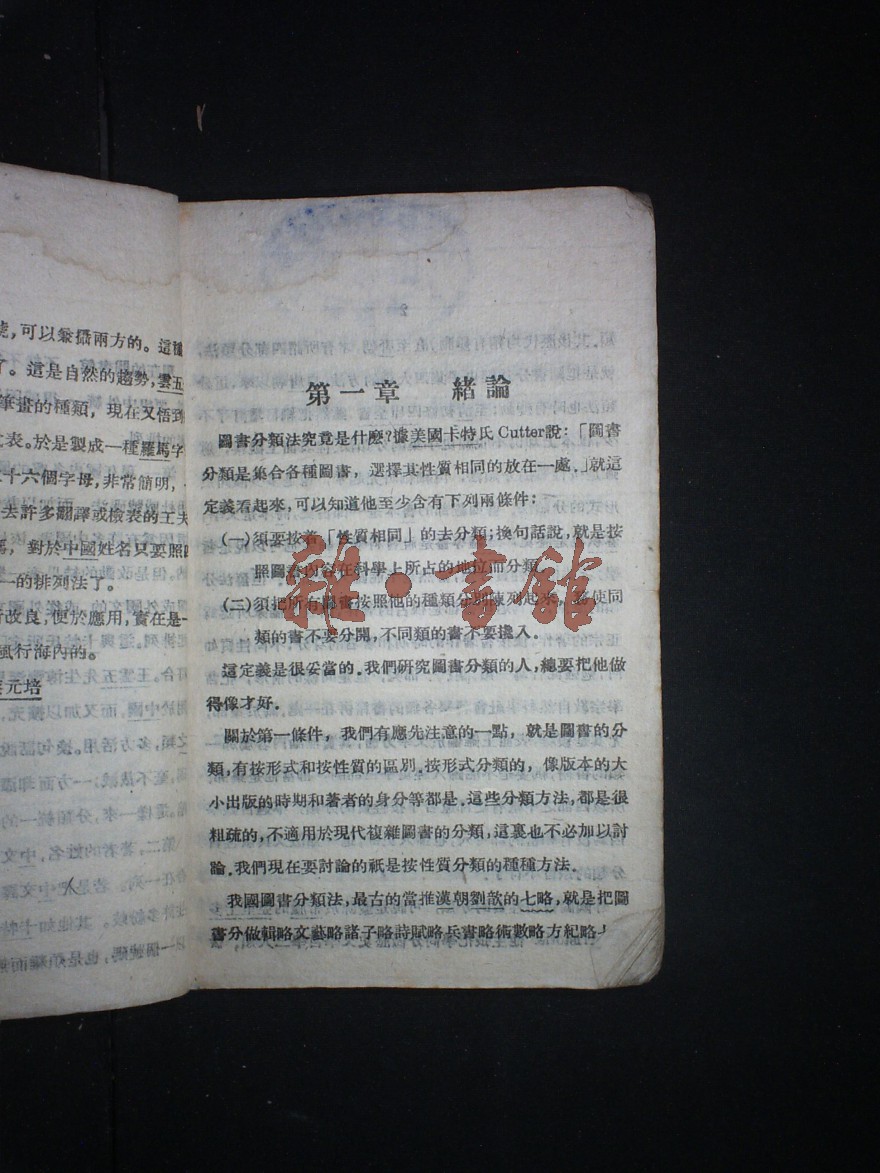 號，可以兼攝兩方的。這種
了。這是自然的趨勢，雲五
筆畫的種類，現在又悟到
表。於是製成一種羅馬字
十六個字母，非常簡明，
去許多翻譯或檢表的工夫
對於中國姓名只要照
一的排列法了。
改良，便於應用，實在是一
風行海內的。
元培
第一章 緒論
圖書分類法究竟是什麼？據美國卡特氏Cutter說：「圖書
分類是集合各種圖書，選擇其性質相同的放在一處。」就這
定義看起來，可以知道他至少含有下列兩條件：
(一)須要按着「性質相同」的去分類；換句話說，就是按
照圖書內容在科學上所占的地位而分類。
(二)須把所有圖書按照他的種類分別陳列起來，務使同
類的書不要分開，不同類的書不要攙入。
這定義是很妥當的。我們研究圖書分類的人，總要把他做
得像才好。
關於第一條件，我們有應先注意的一點，就是圖書的分
類，有按形式和按性質的區別。按形式分類的，像版本的大
小出版的時期和著者的身分等都是，這些分類方法，都是很
粗疏的，不適用於現代複雜圖書的分類，這裏也不必加以討
論。我們現在要討論的祇是按性質分類的種種方法。
我國圖書分類法，最古的當推漢朝劉歆的七略，就是把圖
書分做輯略文藝略諸子略詩賦略兵書略術數略方紀略
雜·書館